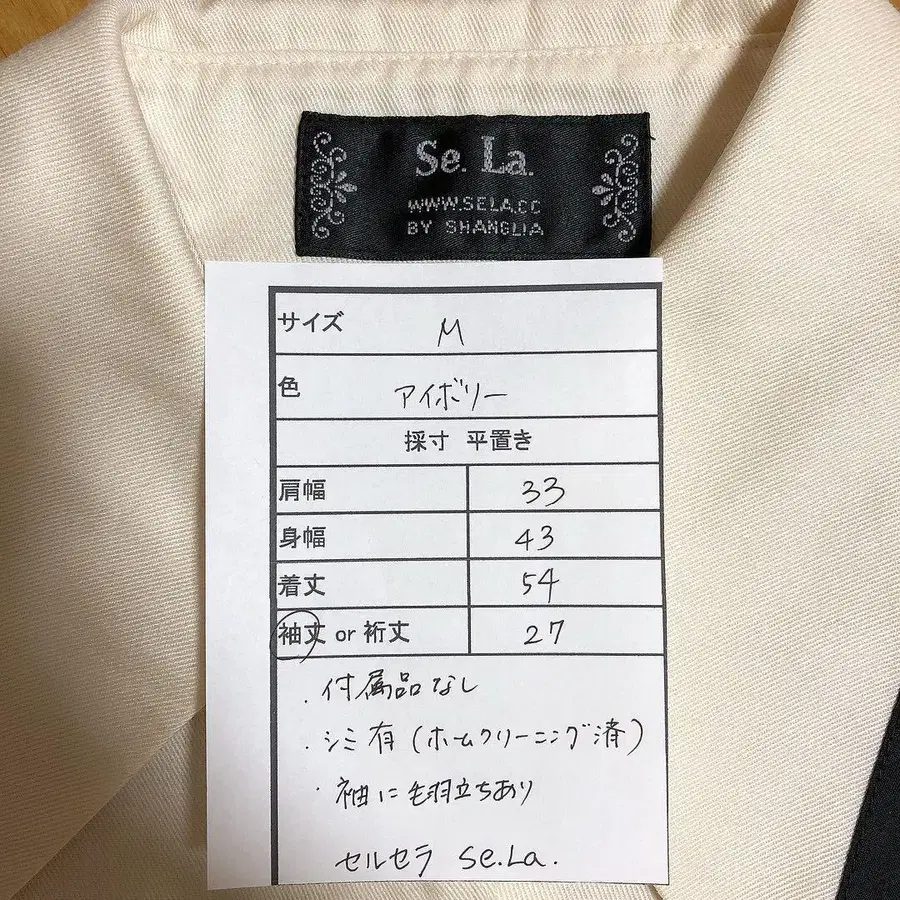 Se. La.
WWW.SELA.CC
BY SHANGLIA
サイズ M
色 アイボリー
採寸 平置き
肩幅 33
身幅 43
着丈 54
袖丈 or 裄丈 27
・付属品なし
・シミ有(ホームクリーニング済)
・袖に毛羽立ちあり
セルセラ Se.La.